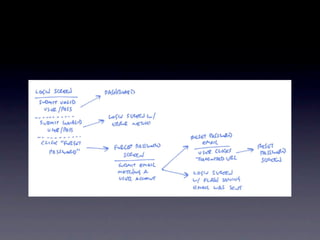 LOGIN SCREEN
SUBMIT VALID
USER/PASS
DASHBOARD
SUBMIT INVALID
USER/PASS
LOGIN SCREEN W/
ERROR
CLICK "FORGOT
PASSWORD"
FORGOT PASSWORD
SCREEN
SUBMIT EMAIL
MATCHING A
USER ACCOUNT
RESET PASSWORD
EMAIL
USER CLICKS
URL
RESET
PASSWORD
SCREEN
LOGIN SCREEN
W/ FLASH SAYING
EMAIL WAS SENT